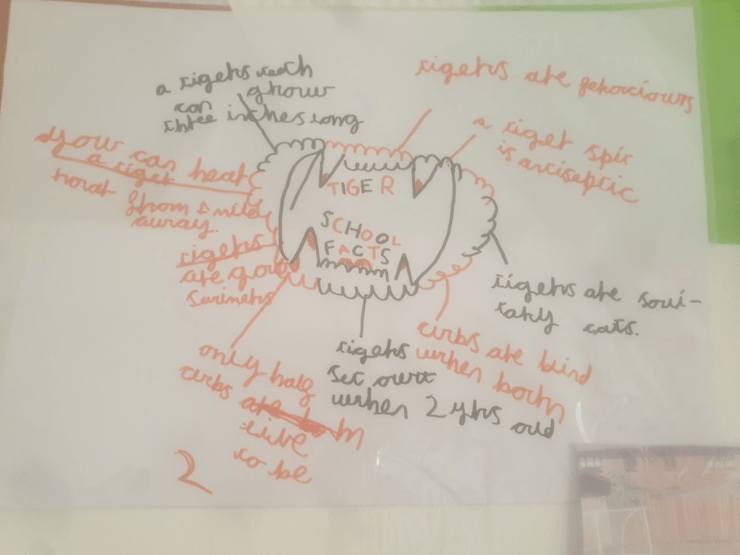 a tigers teeth
can grow
three inches long
tigers are ferociours
a tiger spit
is antiseptic
You can hear
a tiger
roar from mile
away.
tigers
are good
swimers
TIGER
SCHOOL
FACTS
tigers are soli-
tary cats.
cubs are blind
when born
tigers
set out
when 2 yrs old
only half
cubs are born
live
to be
2